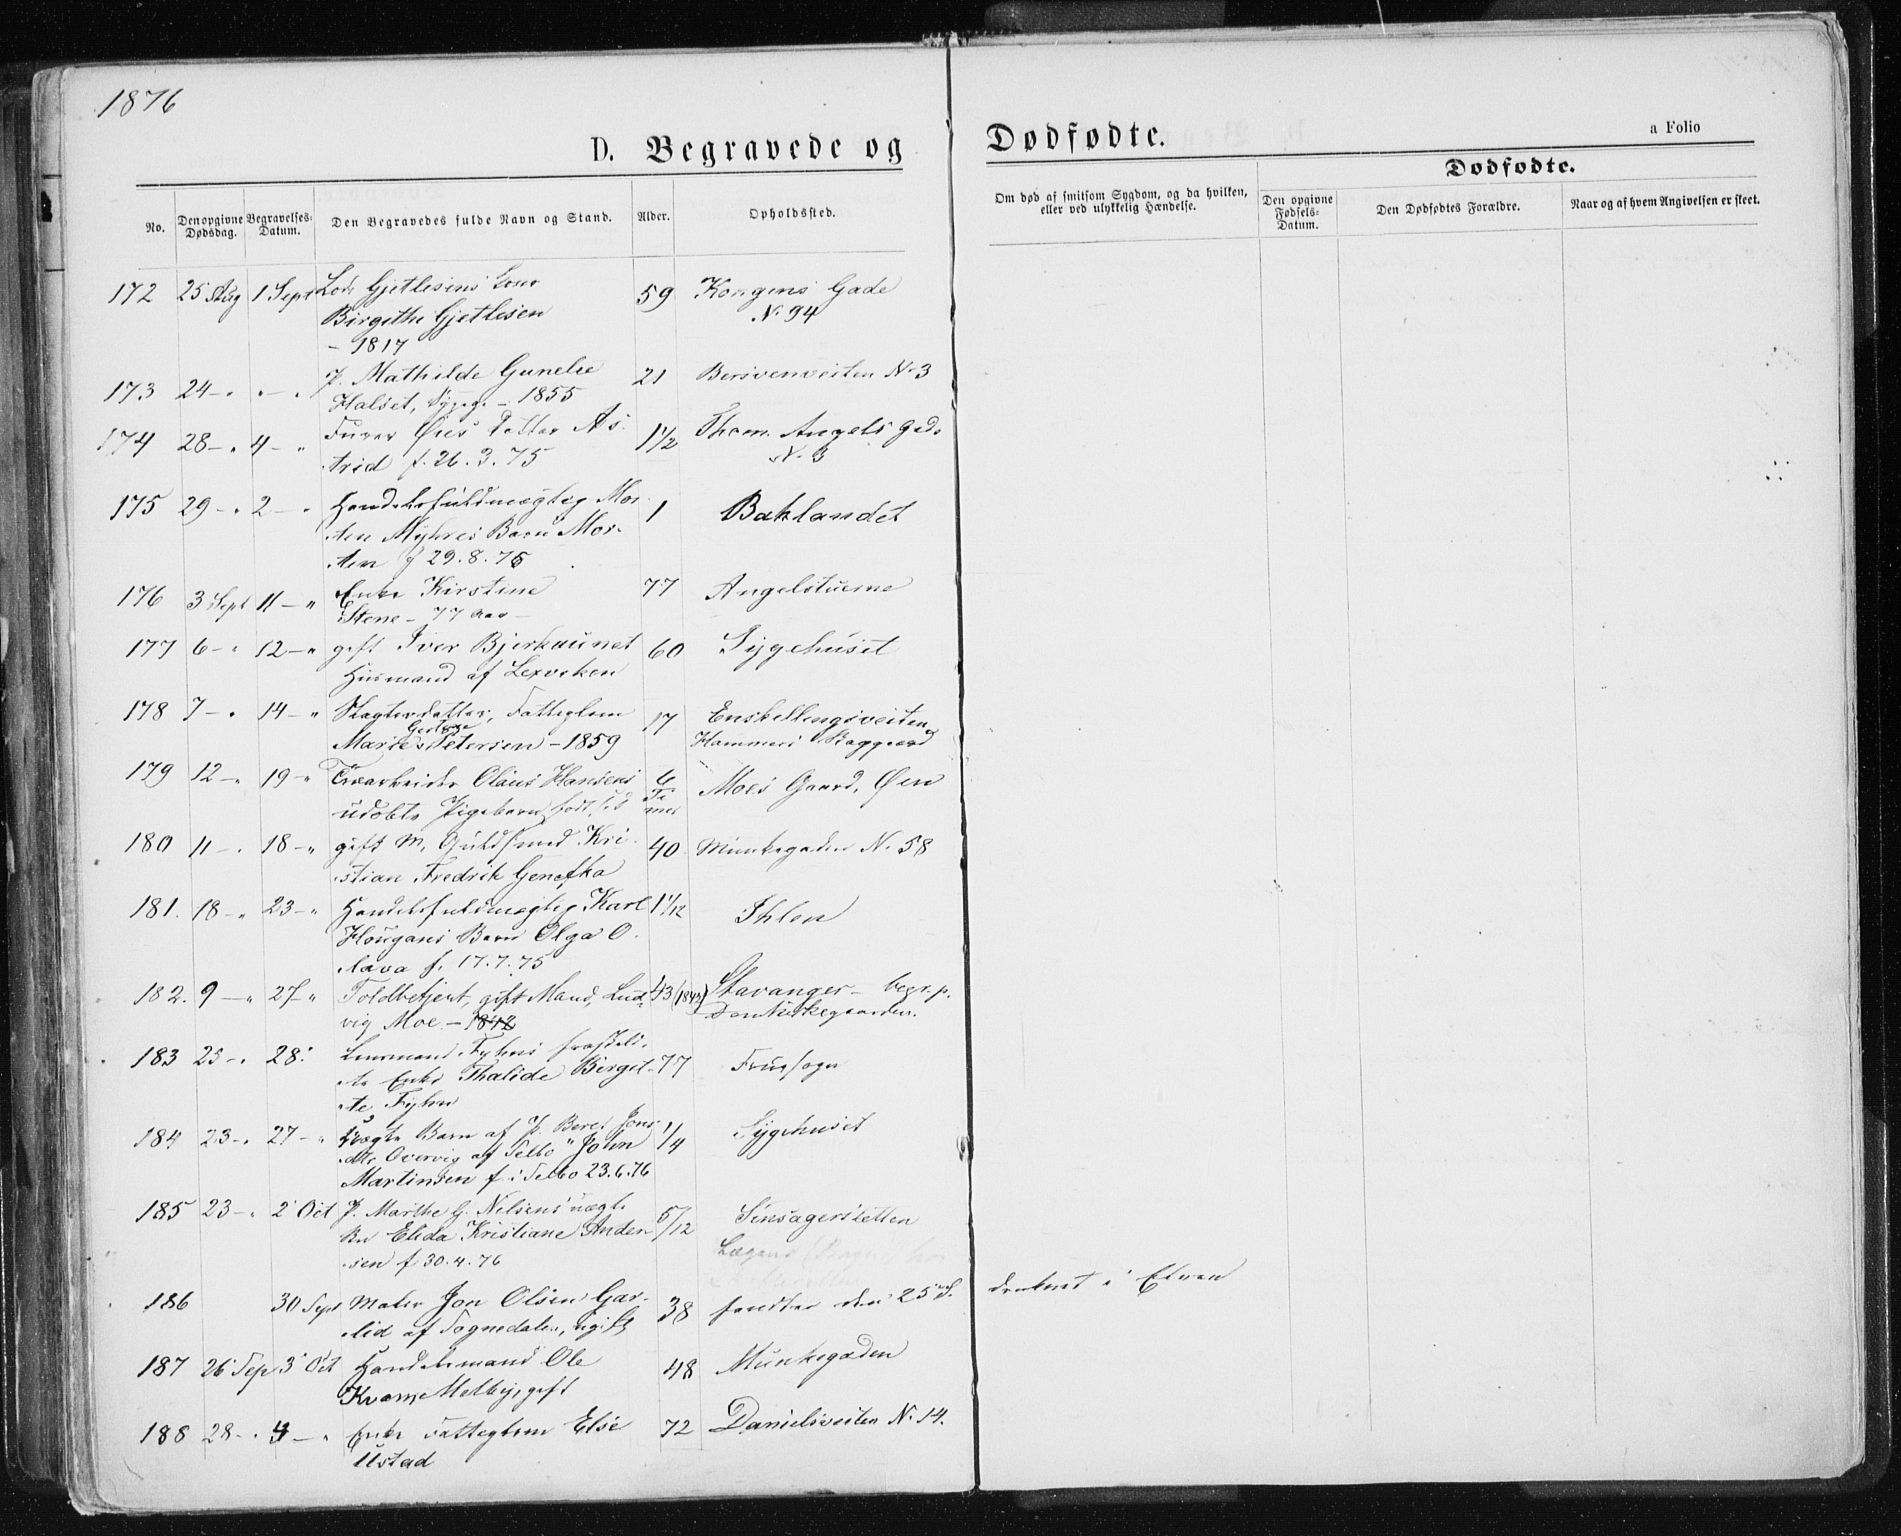 1876
D. Begravede og Dødfødte.
a Folio
No. Den opgivne Dødsdag. Begravelses-Datum. Den Begravedes fulde Navn og Stand. Alder. Opholdssted.
Om død af smitsom Sygdom, og da hvilken, eller ved ulykkelig Hændelse.
Dødfødte.
Den opgivne Fødsels-Datum. Den Dødfødtes Forældre. Naar og af hvem Angivelsen er skeet.
172 25 Aug 1 Sept Lods Gjetlesens 59 Kongens Gade
Birgithe Gjetlesen N. 94
- 1817
173 24 - " " - " P. Mathilde Gunelie 21 Bersvenveiten N. 3
Halset, - 1855
174 28 - " 4 - " Øies Datter As- 1 1/2 Thom. Angels Gade
trid f. 26.3.75 N. 3
175 29 - " 2 - " Handelsfuldmægtig Mor- 1 Baklandet
ten Myhres Barn Mor-
ten f 29.8.75
176 3 Sept 11 - " Enke Kirstine 77 Angelstuerne
Stene - 77 Aar -
177 6 - " 12 - " gift Iver Bjerkaunet 60 Sygehuset
Husmand af Lexviken
178 7 - " 14 - " Slagterdatter, Fatteglem 17 Enskellingsveiten
Marie Petersen - 1859 Hammers
179 12 - " 19 - " Olaus Hansens 6 Moes Gaard, Øen
udøbte Pigebarn, født Ti-
mer
180 11 - " 18 - " gift M. Guldsmed Kri- 40 Munkegaden N. 58
stian Fredrik Genefka
181. 18 - " 23 - " Handelsfuldmægtig Karl 1 1/12 Ihlen
Hougans Barn Olga O-
lava f. 17.7.75
182. 9 - " 27 " Toldbetjent, gift Mand, Lud- 43 (1843) Stavanger - begr. p.
vig Moe - 1842 Domkirkegaarden.
183 25 - " 28. Lensmand Fyhns fraskil-
te Enke Thalide Birgit- 77 Fruesogn
te Fyhn
184 23 - " 27 - " uægte Barn af P. Beret Jons- 1/4 Sygehuset
dtr Overvig af Selbo "John
Martinsen f. i Selbo 23.6.76
185 23 - " 2 Oct P. Marthe G. Nelsens uægte 5/12 Sinsagerstetten
Bn Elida Kristiane Ander-
sen f 30.4.76
186 30 Sept Maler Jon Olsen Gar- 38 fundten den 25 S. druknet i Elven
lid af Sognedalen, ugift
187 26 Sep 3 Oct Handelsmand Ole 48 Munkegaden
Kvam Melby, gift
188 28 - " 4 - " Enke Fatteglem Else 72 Danielsveiten N. 14.
Ustad